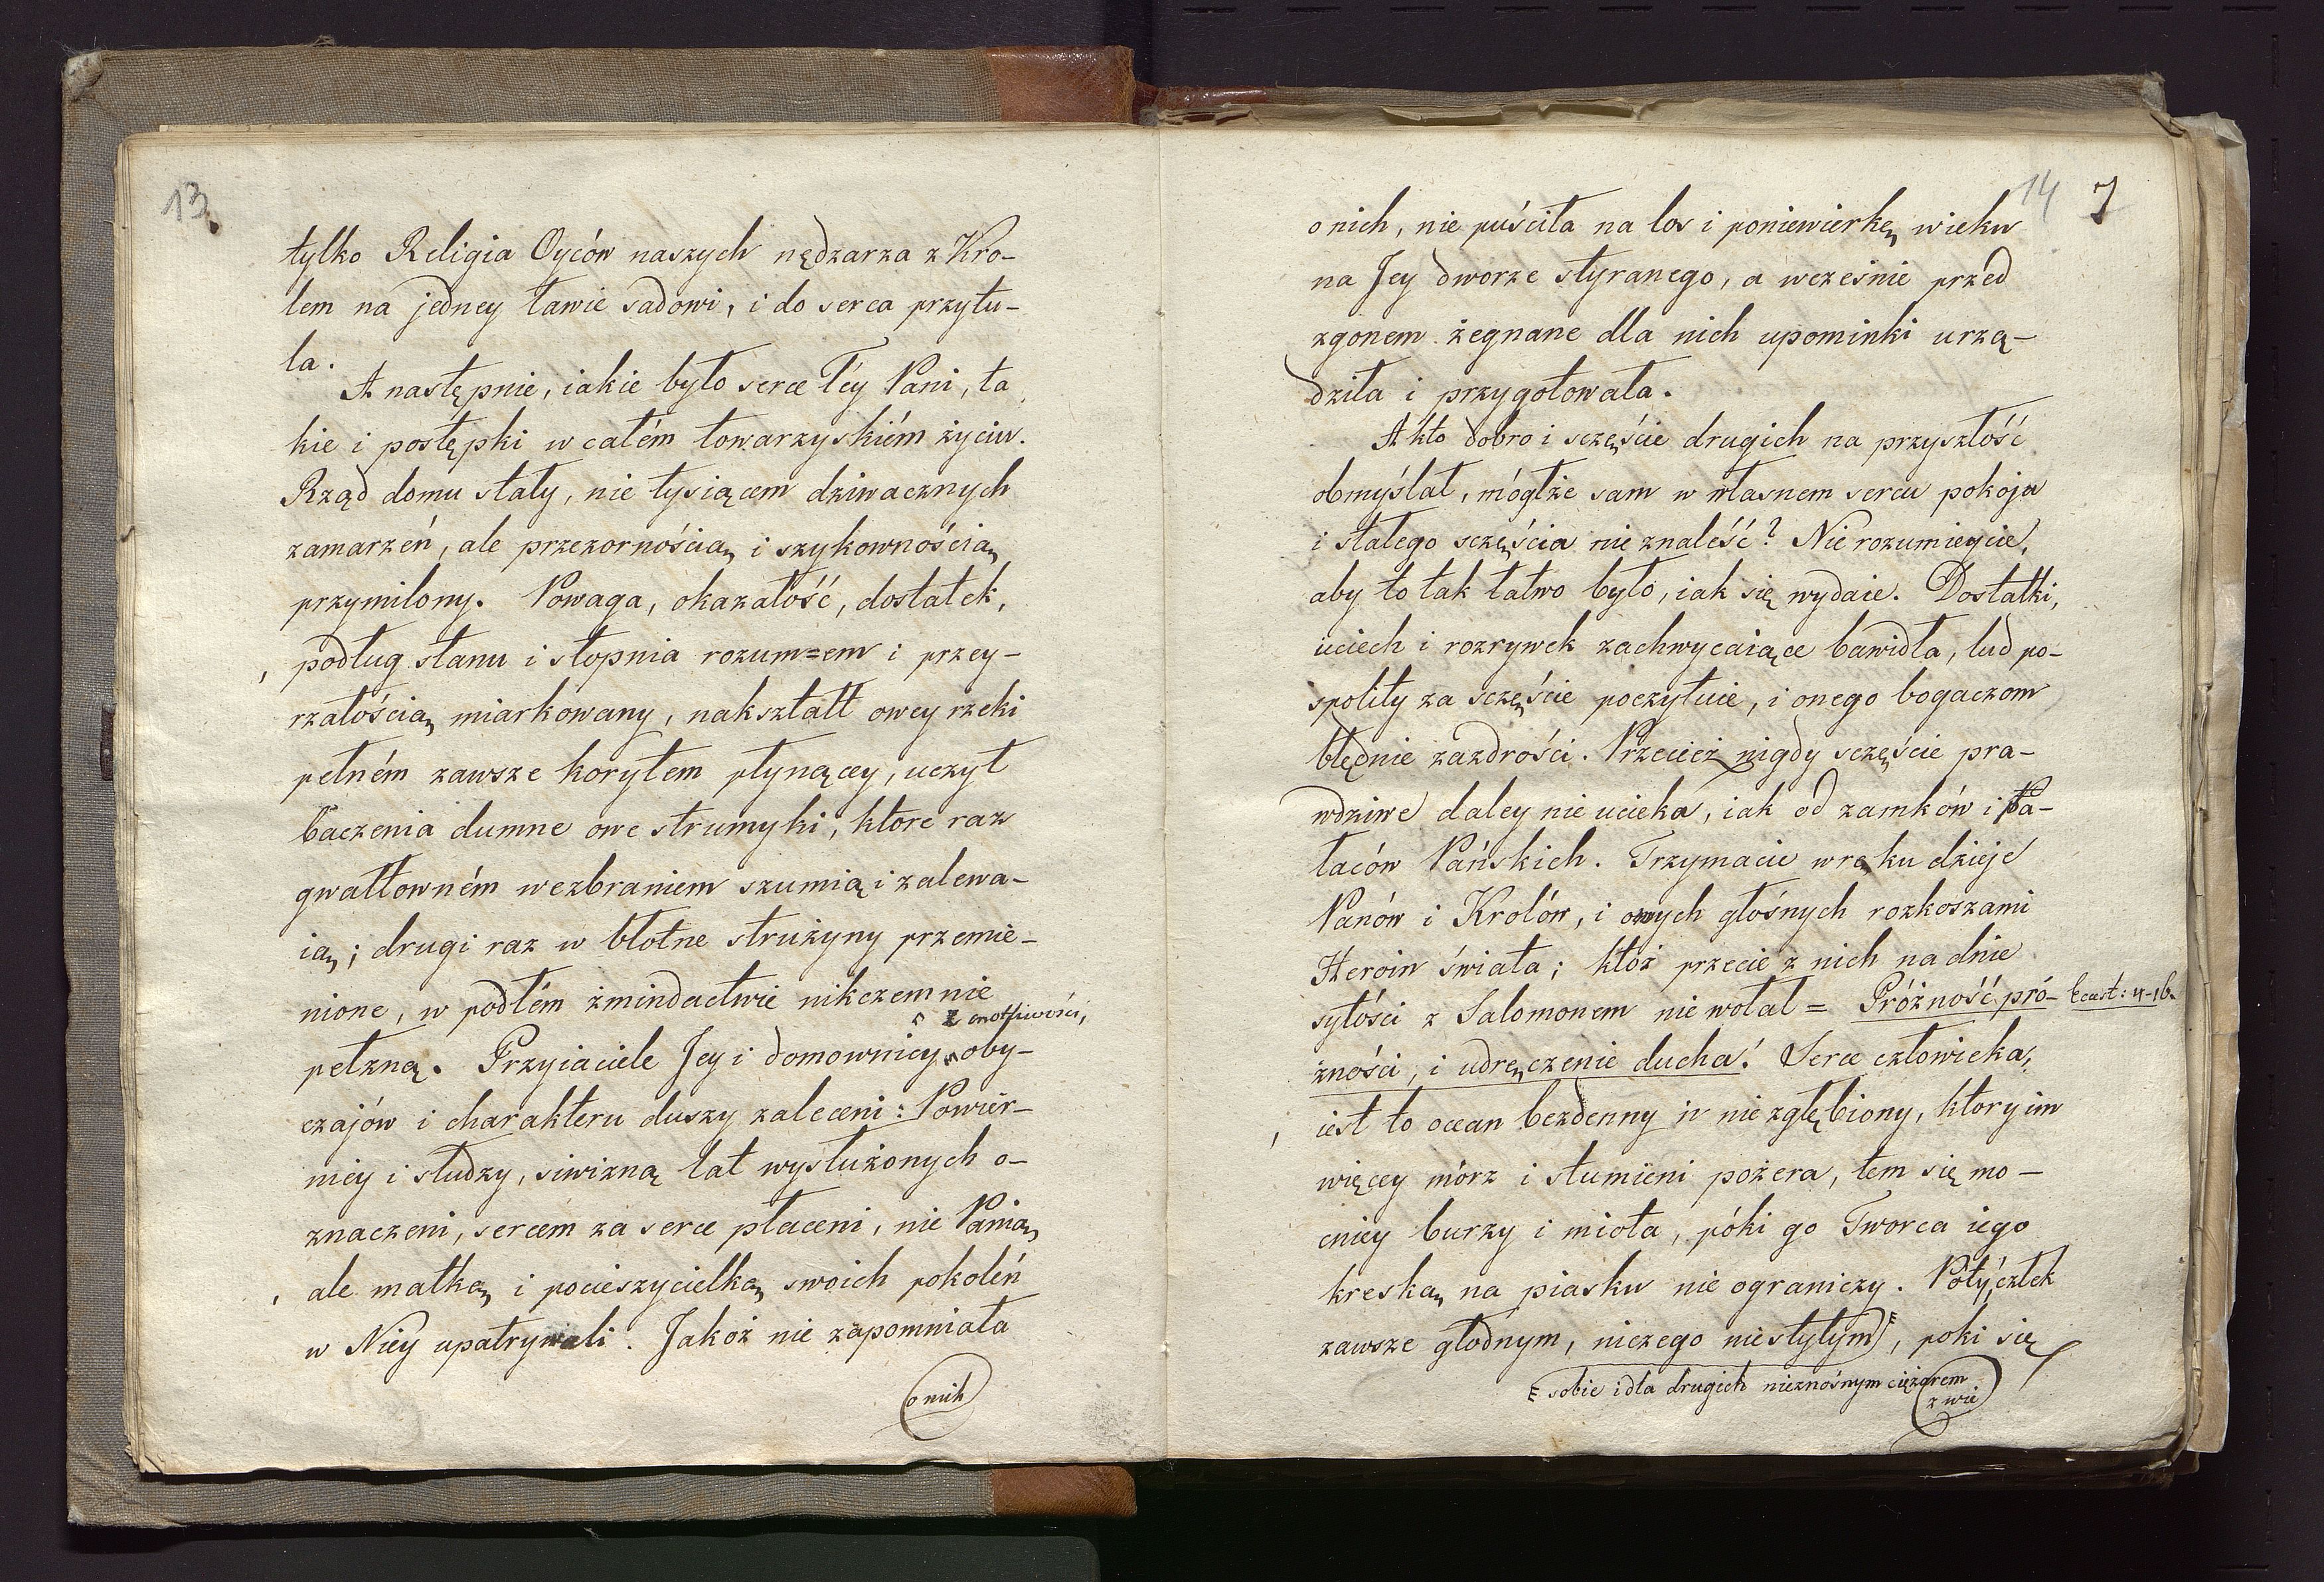 13.
tylko Religia Oyców naszych nędzarza z Kro-
lem na jedney ławie sadowi, i do serca przytu-
la.
A następnie, iakie było serce Téy Pani, ta
kie i postępki w całém towarzyskiém życiu.
Rząd domu stały, nie tysiącem dziwacznych
zamarzeń, ale przezornością i szykownością
przymilony. Powaga, okazałość, dostatek,
podług stanu i stopnia rozum=em i przey-
rzałością miarkowany, nakształt owey rzeki
pełném zawsze korytem płynącey, uczył
baczenia dumne owe strumyki, ktore raz
gwałtowném wezbraniem szumią i zalewa-
ią; drugi raz w błotne strużyny przemie-
nione, w podłém żmindactwie nikczemnie
z cnotliwości,
pełzną. Przyiaciele Jey i domownicy oby-
czajów i charakteru duszy zaleceni: Powier-
nicy i słudzy, siwizną lat wysłużonych o-
znaczeni, sercem za serce płaceni, nie Panią
ale matką i pocieszycielką swoich pokoleń
w Niey upatrywali. Jakoż nie zapomniała
o nich
14 7
o nich, nie puściła na los i poniewierkę wieku
na Jey dworze styranego, a wcześnie przed
zgonem żegnane dla nich upominki urzą-
dziła i przygotowała.
A kto dobro i sczęście drugich na przyszłość
obmyślał, mógłże sam w własnem sercu pokoju
i stałego sczęścia nie znaleść? Nie rozumieycie,
aby to tak łatwo było, iak się wydaie. Dostatki,
uciech i rozrywek zachwycaiące bawidła, lud po-
spolity za sczęście poczytuie, i onego bogaczom
błędnie zazdrości. Przecież nigdy sczęście pra-
wdziwe daley nie ucieka, iak od zamków i Pa-
łaców Pańskich. Trzymacie w ręku dzieje
Panów i Krolów, i owych głośnych rozkoszami
Heroin świata; któż przecie z nich na dnie
sytości z Salomonem nie wołał = Próżność pró- Eccest: 4-16.
żności, i udręczenie ducha! Serce człowieka,
iest to ocean bezdenny i niezgłębiony, który im
więcey mórz i stumieni pożera, tem się mo-
cniey burzy i miota, póki go Tworca iego
kreską na piasku nie ograniczy. Póty człek
zawsze głodnym, niczego niesytym, poki się
sobie i dla drugich nieznośnym ciężarem
z wie